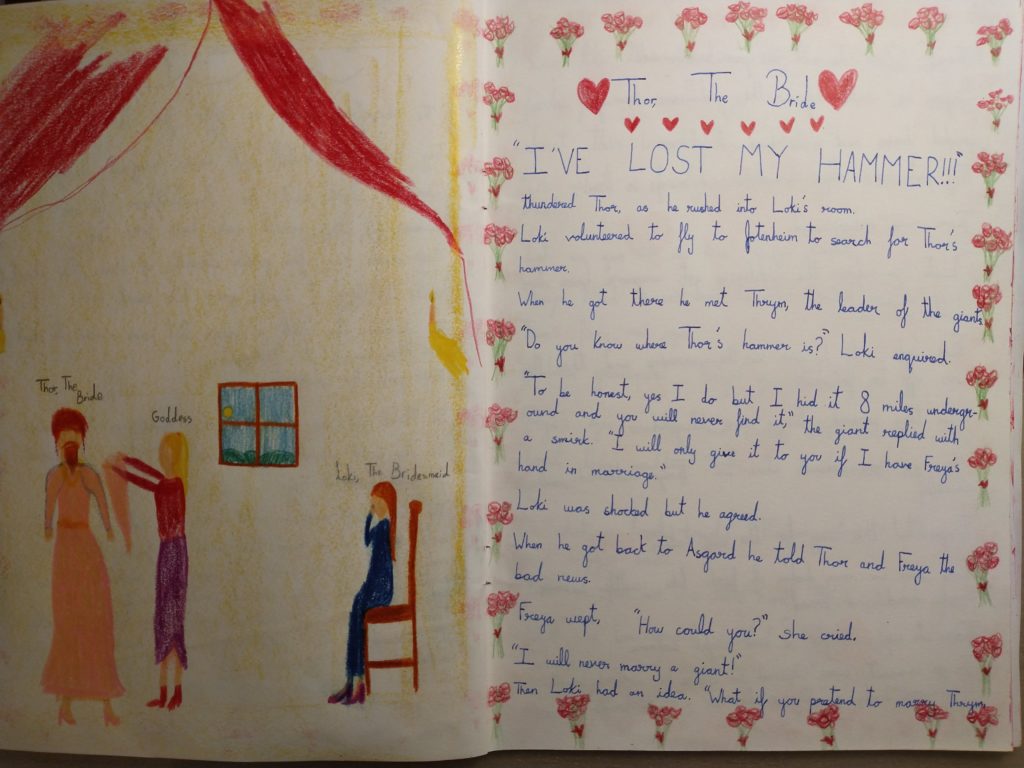 Thor, The
Bride
Goddess
Loki, The Bridesmaid
Thor, The Bride
"I'VE LOST MY HAMMER!!!"
thundered Thor, as he rushed into Loki's room.
Loki volunteered to fly to Jotenheim to search for Thor's
hammer.
When he got there he met Thrym, the leader of the giants.
"Do you know where Thor's hammer is?" Loki enquired.
"To be honest, yes I do but I hid it 8 miles undergr-
ound and you will never find it," the giant replied with
a smirk. "I will only give it to you if I have Freya's
hand in marriage."
Loki was shocked but he agreed.
When he got back to Asgard he told Thor and Freya the
bad news.
Freya wept, "How could you?" she cried.
"I will never marry a giant!"
Then Loki had an idea. "What if you pretend to marry Thrym,